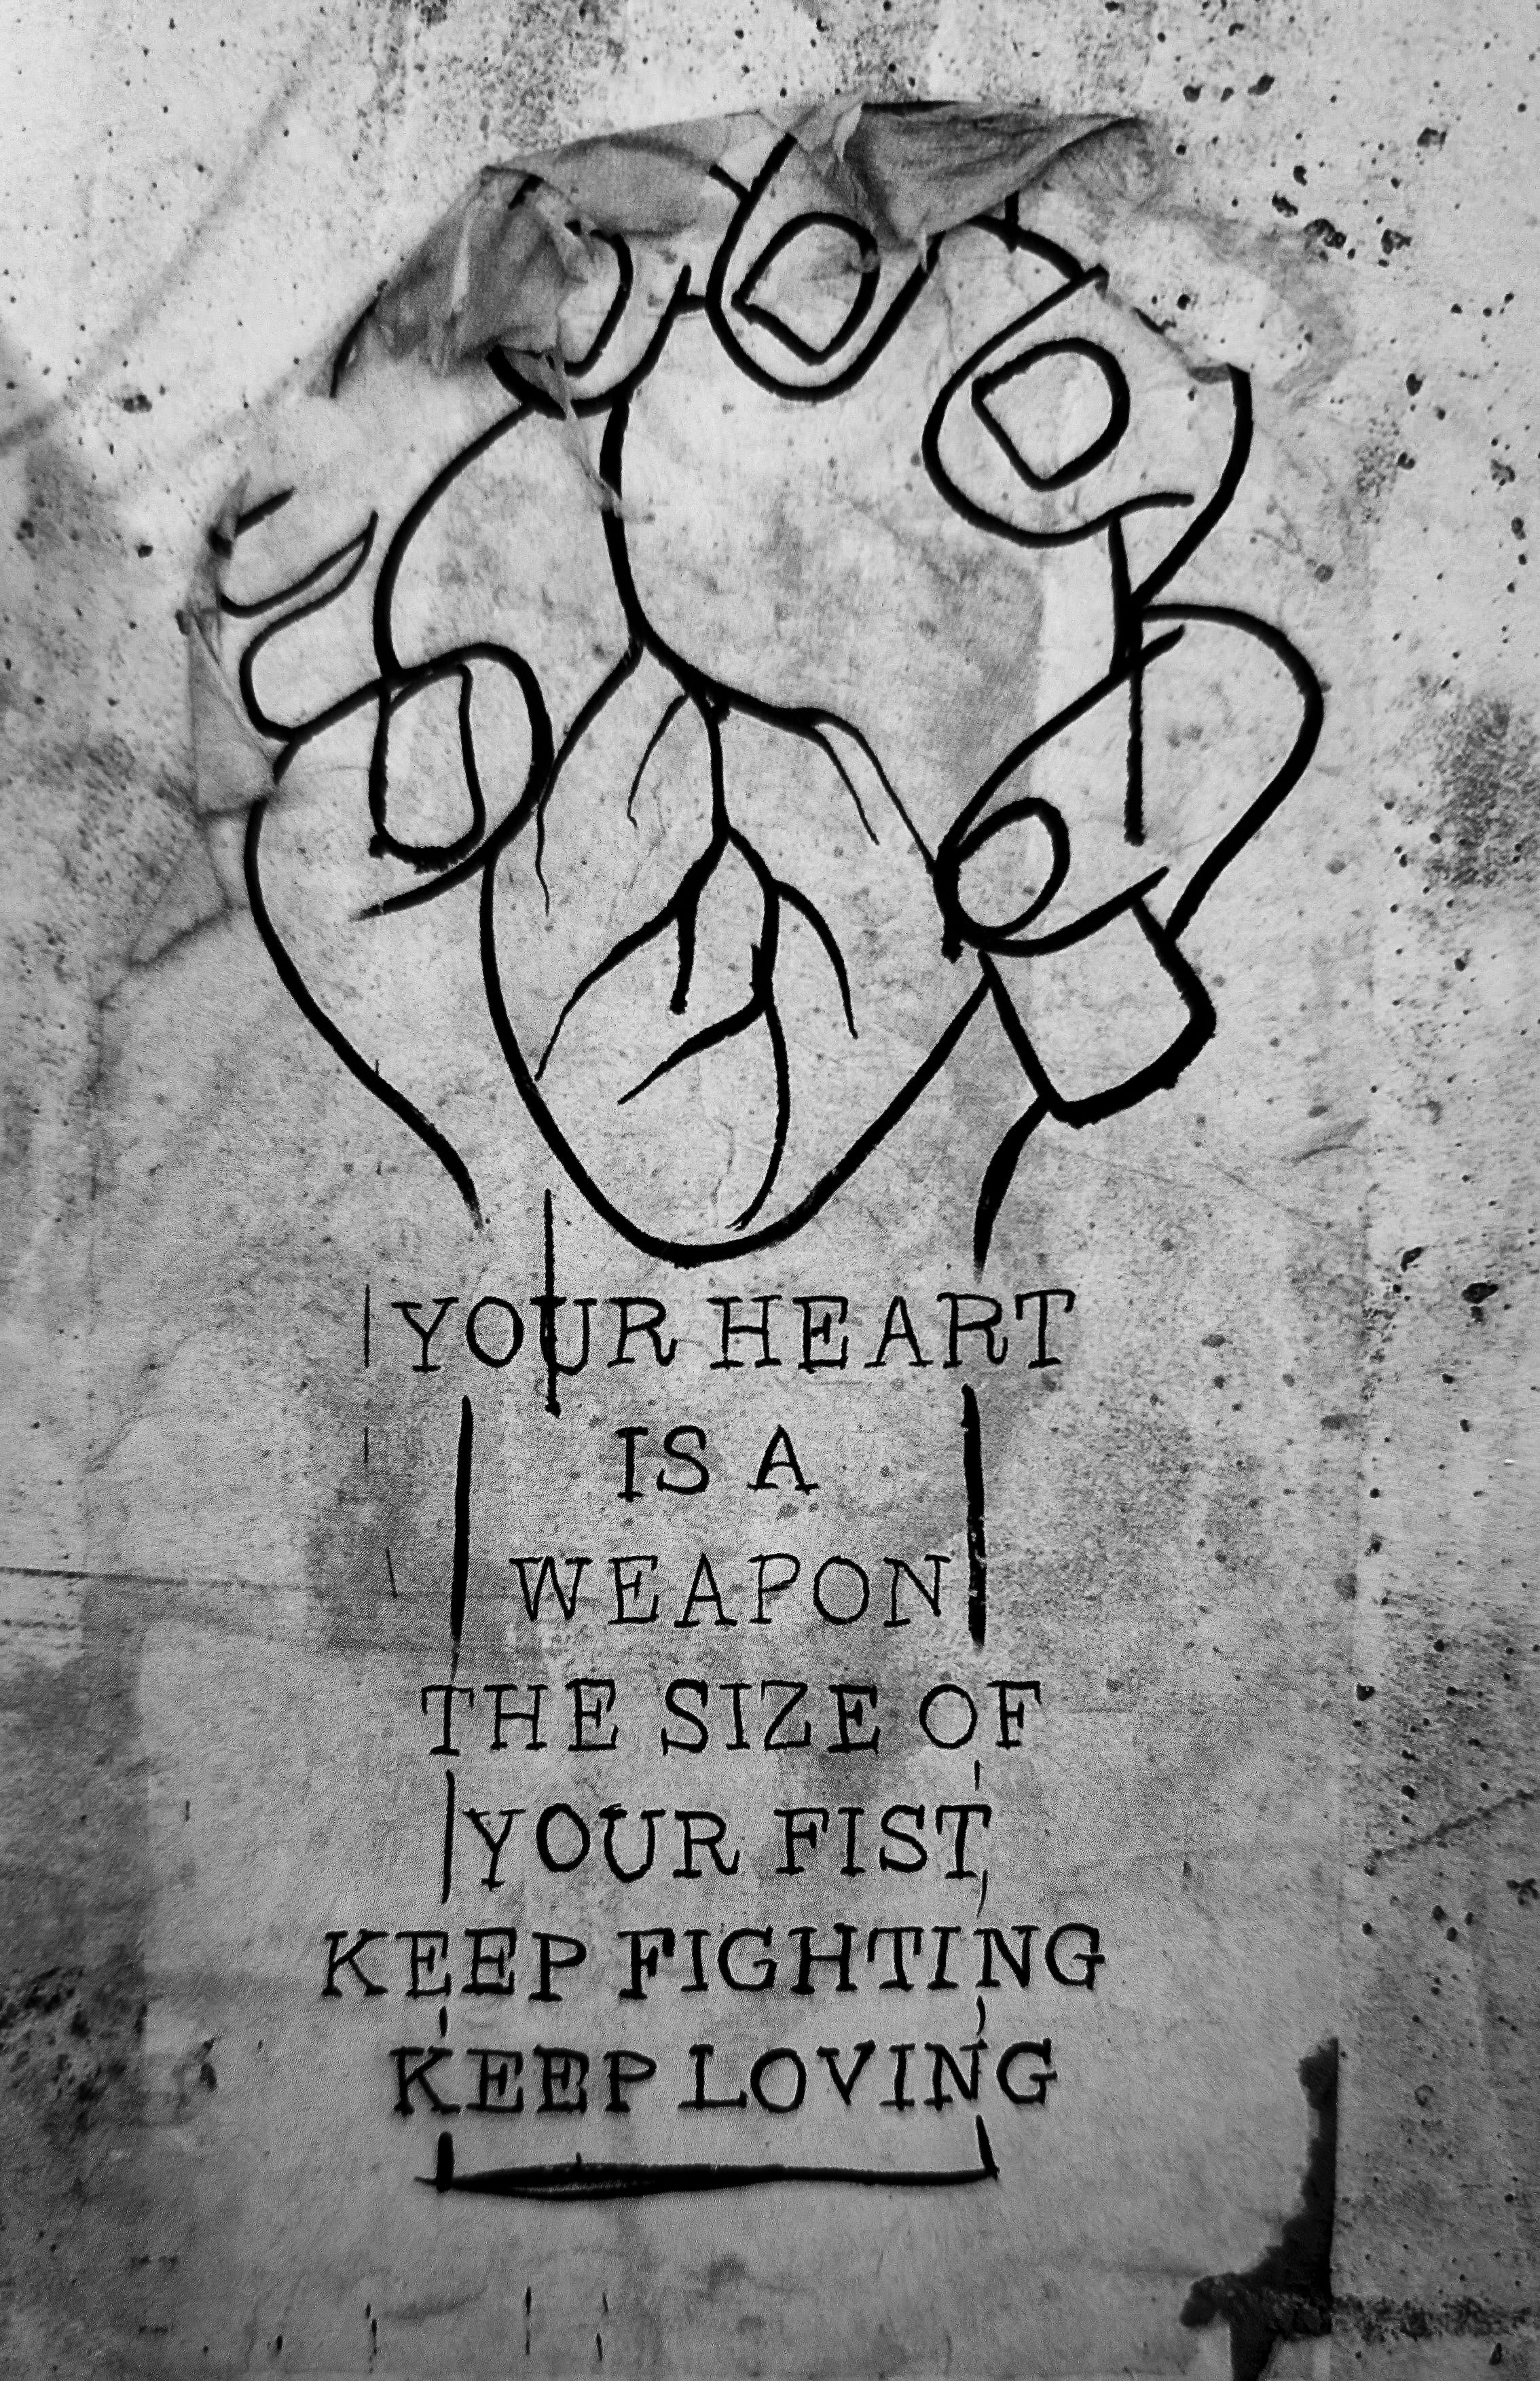 YOUR HEART
IS A
WEAPON
THE SIZE OF
YOUR FIST
KEEP FIGHTING
KEEP LOVING